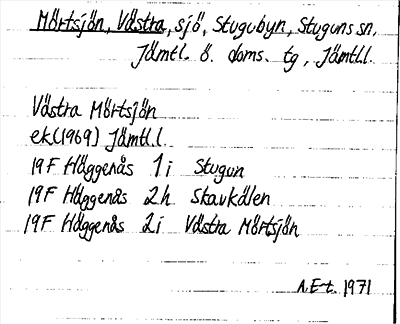 Mörtsjön, Västra, sjö, Stugubyn, Stuguns sn,
Jämtl. ö. doms. tg, Jämtl.l.
Västra Mörtsjön
ek(1969) Jämtl.l.
19F Häggenås 1i Stugun
19F Häggenås 2h Stavkälen
19F Häggenås 2i Västra Mörtsjön
A.E-t. 1971